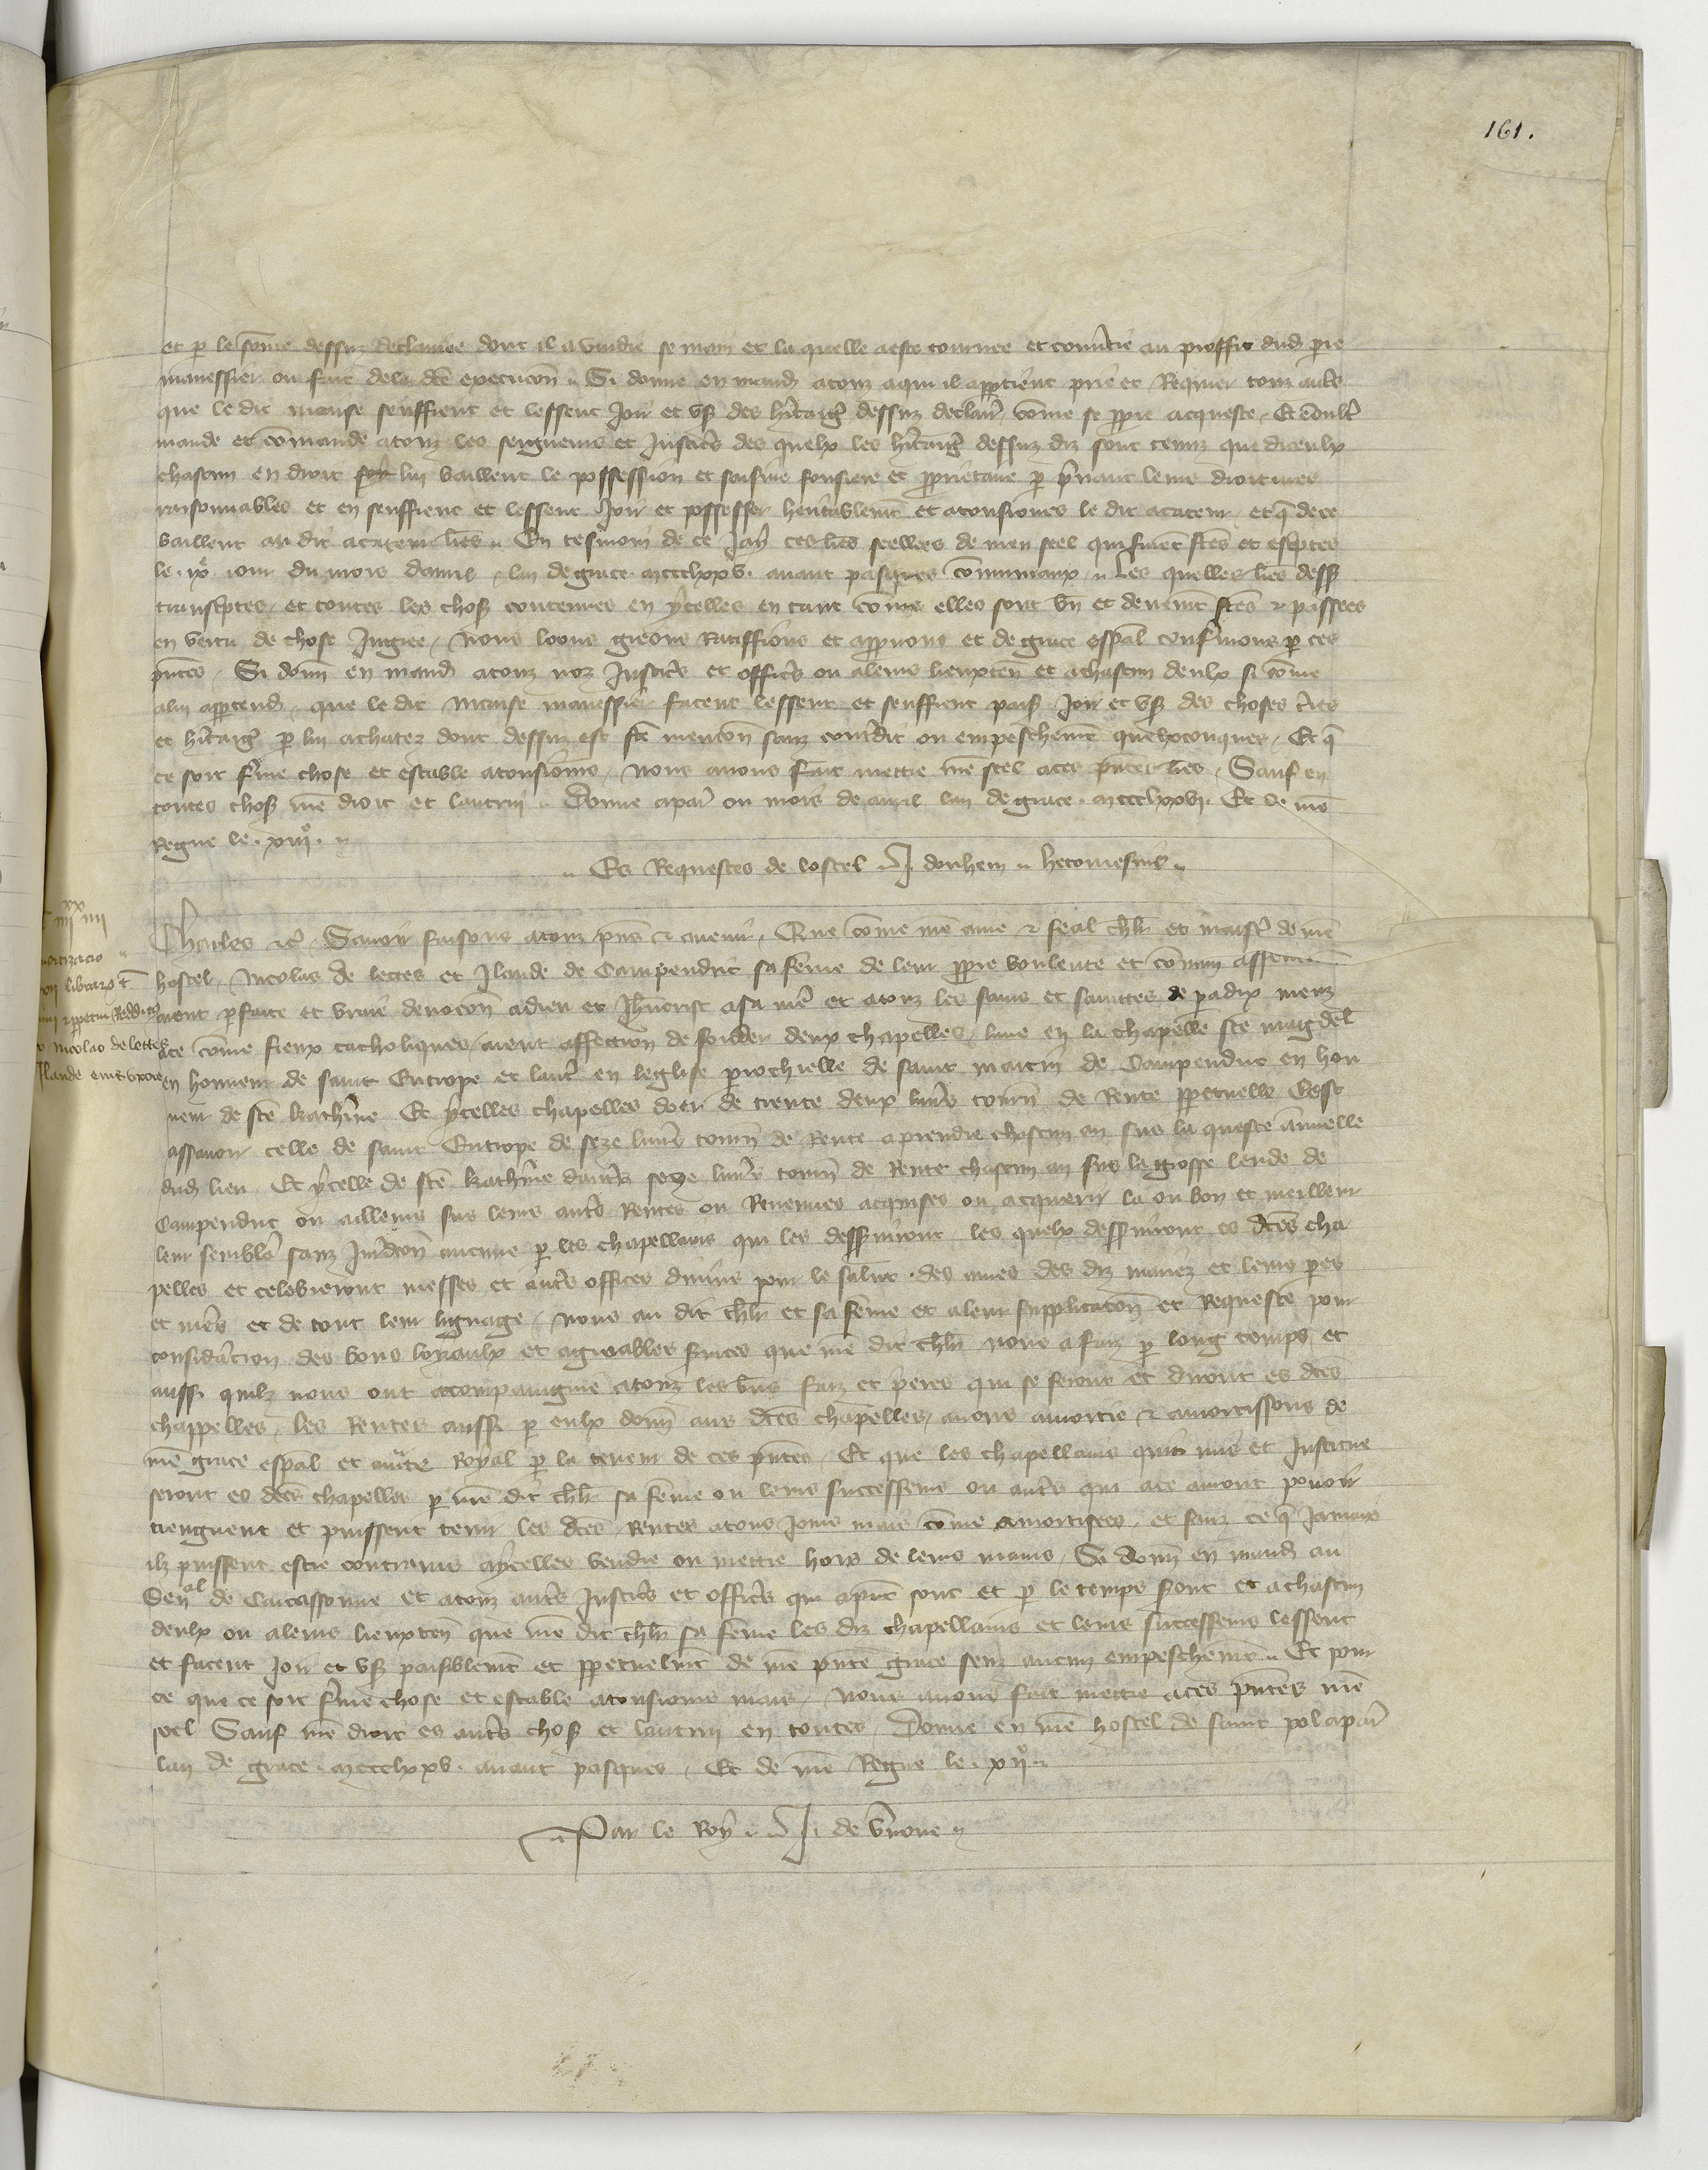 161.
et p le some dessuz declairee dont il a vendu se main et la quelle a este tournee et convtie au proffit dud pre
manessier ou fait de la dce execucon Si donne en mand a touz a qui il apptient prie et Requier touz auts
que le dit manse seuffrent et lessent Joir et vs des hitaig dessuz declair come se ppre acqueste Et
mande et comande a touz les seigneurs et Justics des quelx les hitaig dessuz diz sont tenuz que diceulx
chascun en droit soy lui baillent le possession et saisine fonsiere et pprietaire p pnant leurs droitures
raisonnables et en seuffrent et lessent Joir et possesser hitablemt et a tousiours le dit acateur et q de ce
baillent au dit acateur lres En tesmoin de ce Jay ces lres scellees de men seel qui furent fces et escptes
le ix iour du mois davril lan de grace mccclxxv avant pasques communiaux Les quelles lres dess
transcptes et toutes les chos contenues en ycelles en tant come elles sont bn et deuemt fces et passees
en vertu de chose Jugee Nous loons greons Ratiffions et apprvons et de grace espal confmons p ces
pntes Si donn en mand a touz noz Justics et offics ou a leurs lieuxten et a chascun deulx si come
a lui apptend que le dit Manse manessier facent lessent et seuffrent pais Joir et vs des choses
et hitaig p lui achatez dont dessuz est fce mencon sanz contdit ou empeschemt quelxconques Et q
ce soit fme chose et estable a tousiours Nous avons fait mettre nre seel a ces pntes lres Sauf en
toutes chos nre droit et lautrui Donne a paris ou mois de avril lan de grace mccclxxvi Et de nre
Regne le xiii
Es Requestes de lostel J donhem
Charles etc Savoir faisons a touz pns et avenir Que come nre ame et feal chlr et maist de nre
hostel Nicolas de lettes et Jlande de Campendut sa feme de leur ppre voulente et comun
aient pfaite et vraie devocon a dieu et Jhucrist a sa me et a touz les sains et saintes de padix meuz
a ce come fieux catholiques aient affection de fonder deux chapelles lune en la chapelle ste magdel
en honneur de saint Eutrope et laut en leglise prochielle de saint martin de Campendut en hon
neur de ste kathine Et ycelles chapelles doer de trente deux livrs tourn de Rente ppetuelle Cest
assavoir celle de saint Eutrope de seze livrs tourn de Rente a prendre chascun an sus la queste annuelle
dud lieu Et ycelle de ste kathine dauts seze livrs tourn de Rente chascun an sus le grosse leude de
Campendut ou ailleurs sus leurs auts Rentes ou Revenues acquises ou acquerir la ou bon et meilleur
leur semblera sanz Juridcon aucune p les chapellains qui les desserviront les quelx desserviront es dces cha
pelles et celebreront messes et auts offices divins pour le salut des ames des diz mariez et leurs pes
et mes et de tout leur lignage Nous au dit chlr et sa feme et a leur supplicacon et Requeste pour
considacion des bons loyaulx et agreables svices que nre dit chlr nous a faiz p long temps et
aussi quilz nous ont acompaignie a touz les bns faiz et peres qui se feront et diront es dces
chappelles Les Rentes aussi p eulx donn aus dces chapelles avons amortie et amortissons de
nre grace espal et aucte Royal p la teneur de ces pntes Et que les chapellains qui mis et Justitue
seront es dces chapelles p nre dit chlr sa feme ou leurs successeurs ou auts qui a ce auront povoir
tienguent et puissent tenir les dces Rentes a tous Jours mais come amortisees et sanz ce q Jamais
ilz puissent estre contrains a ycelles vendre ou mettre hors de leurs mains Si donn en mand au
Senal de Carcassonne et a touz auts Justics et offics qui a pnt sont et p le temps sont et a chascun
deulx ou a leurs lieuxten que nre dit chlr sa feme les diz chapellains et leurs successeurs lessent
et facent Joir et vs paisiblemt et ppetuelmt de nre pnte grace sens aucun empeschemt Et pour
ce que ce soit fme chose et estable a tousiours mais Nous avons fait mettre a ces pntes nre
seel Sauf nre droit es auts chos et lautrui en toutes Donne en nre hostel de saint pol a paris
lan de grace mccclxxv avant pasques Et de nre Regne le xii
Par le Roy J de vnone
iiii iiii
libcar
Nicolao de lettes
Jlande eius vxore